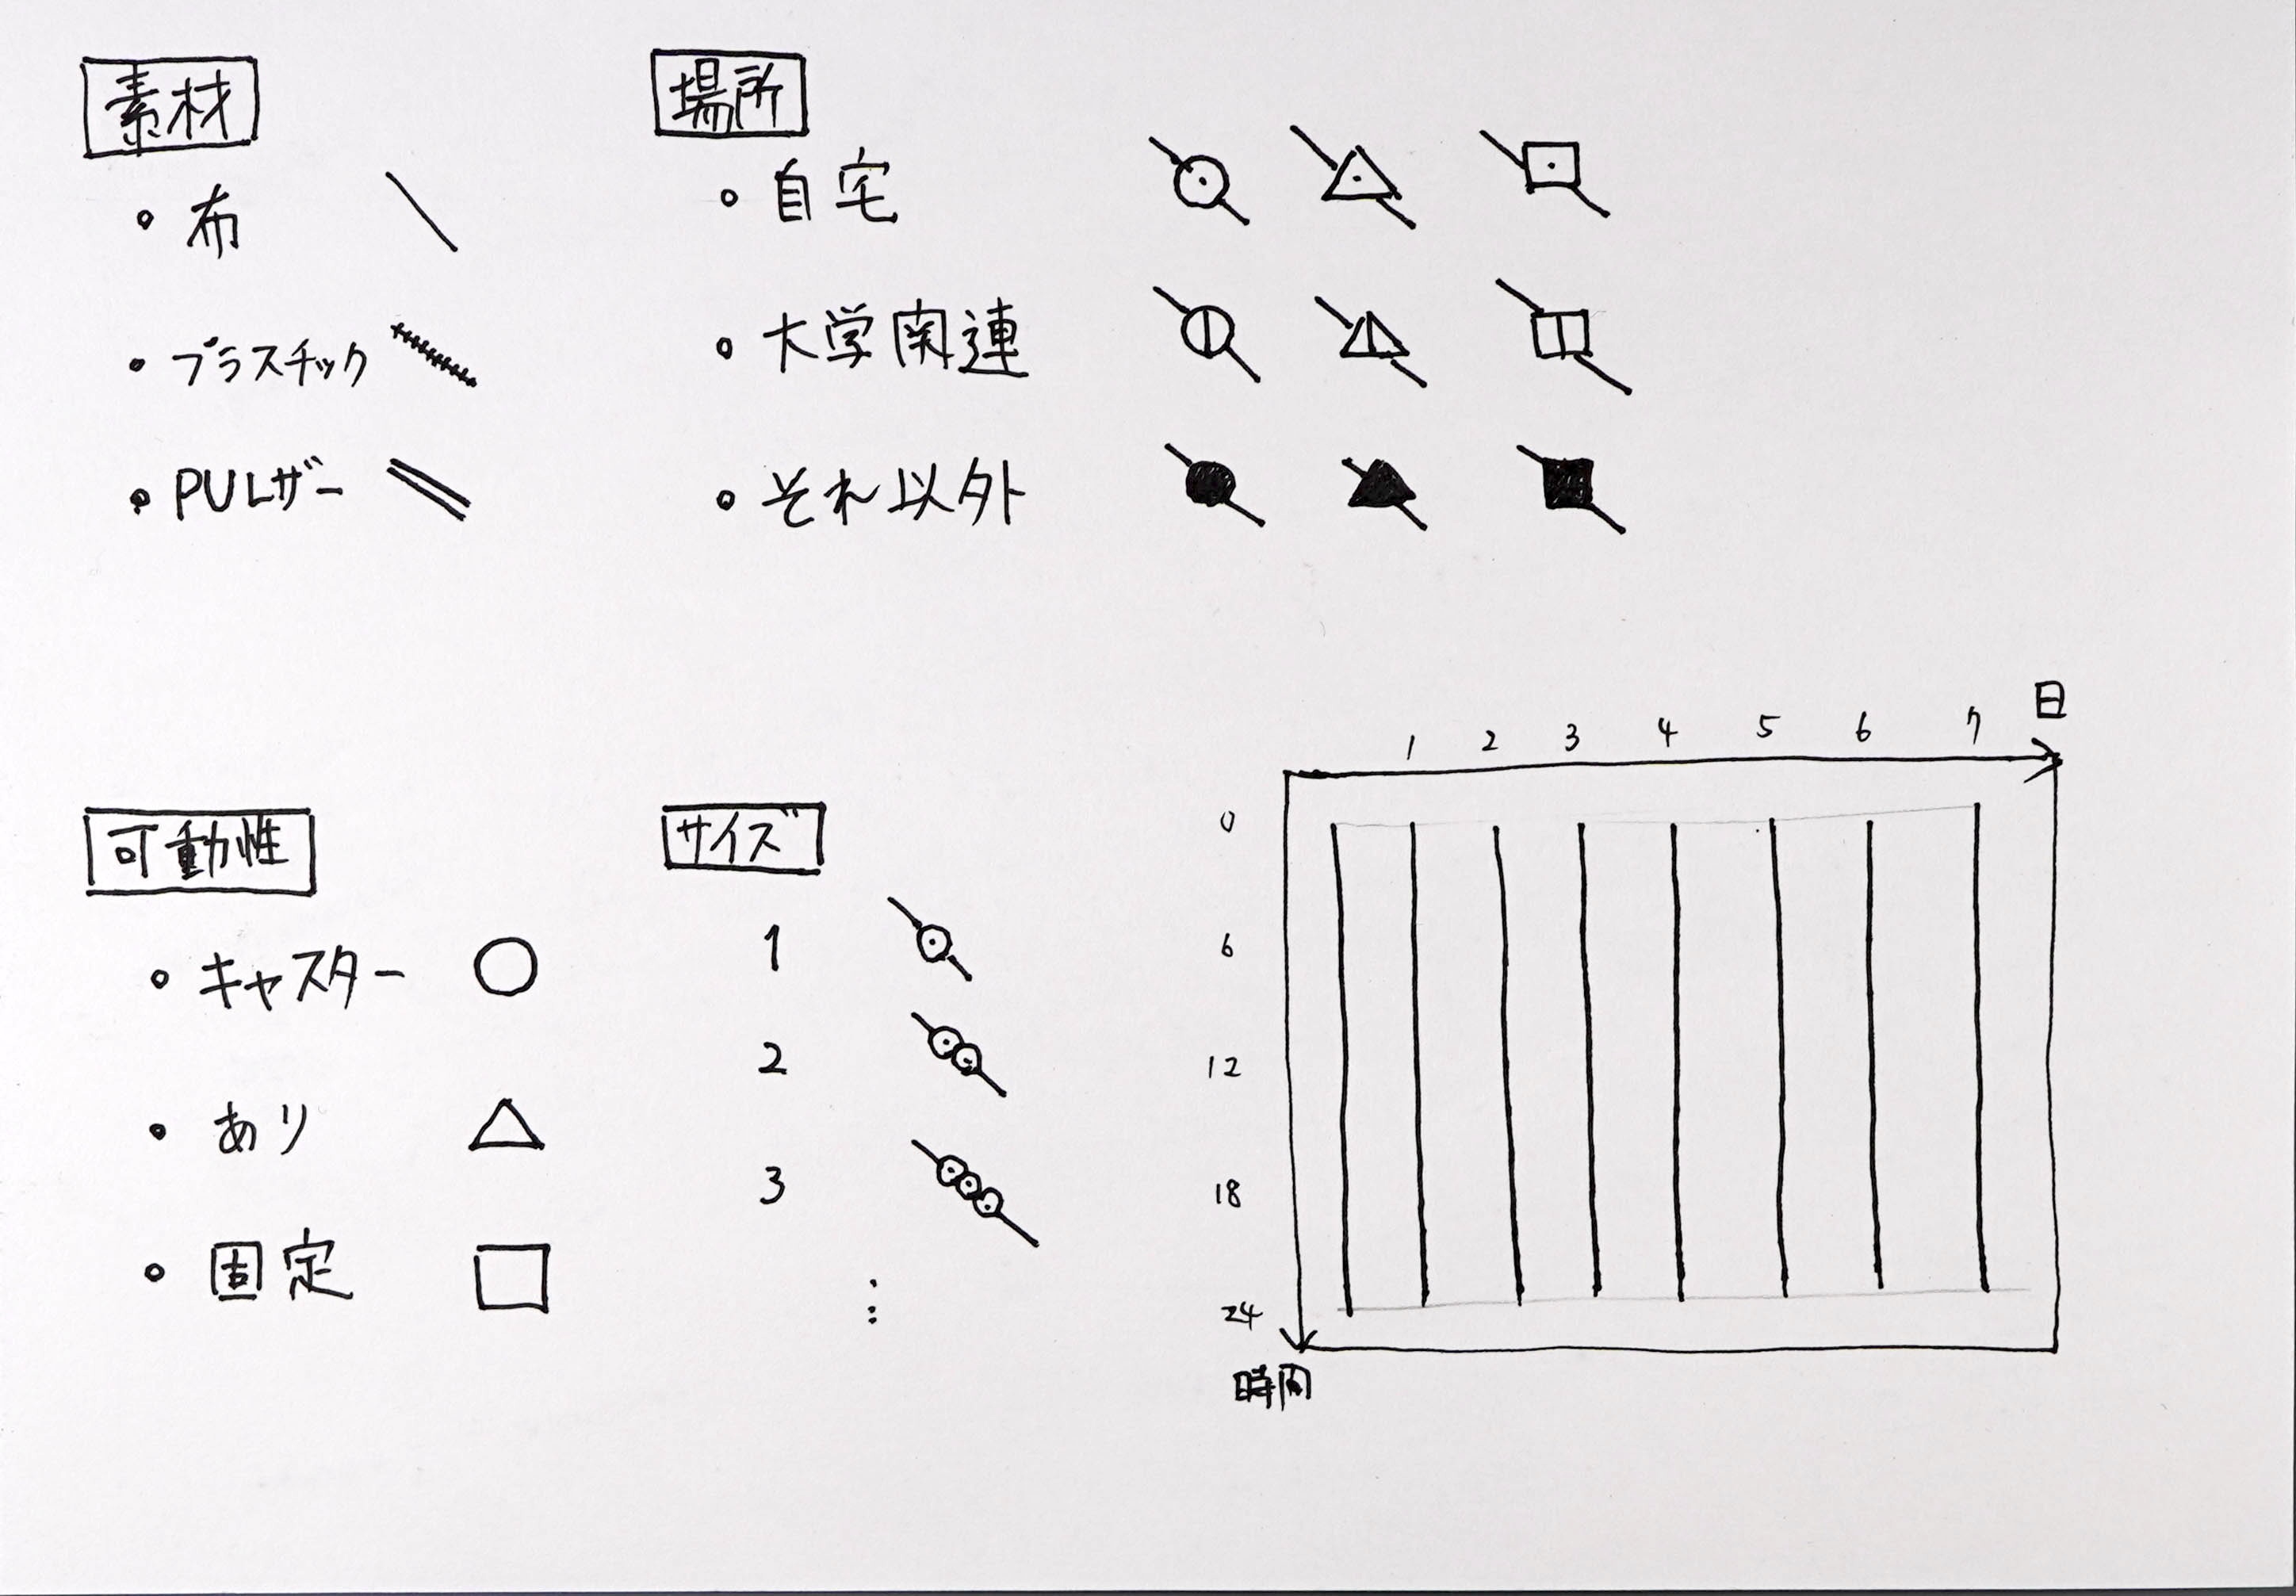 素材
布
プラスチック
PULザー
場所
自宅
大学関連
それ以外
可動性
キャスター
あり
固定
サイズ
1
2
3
日
1 2 3 4 5 6 7
0
6
12
18
24
時間